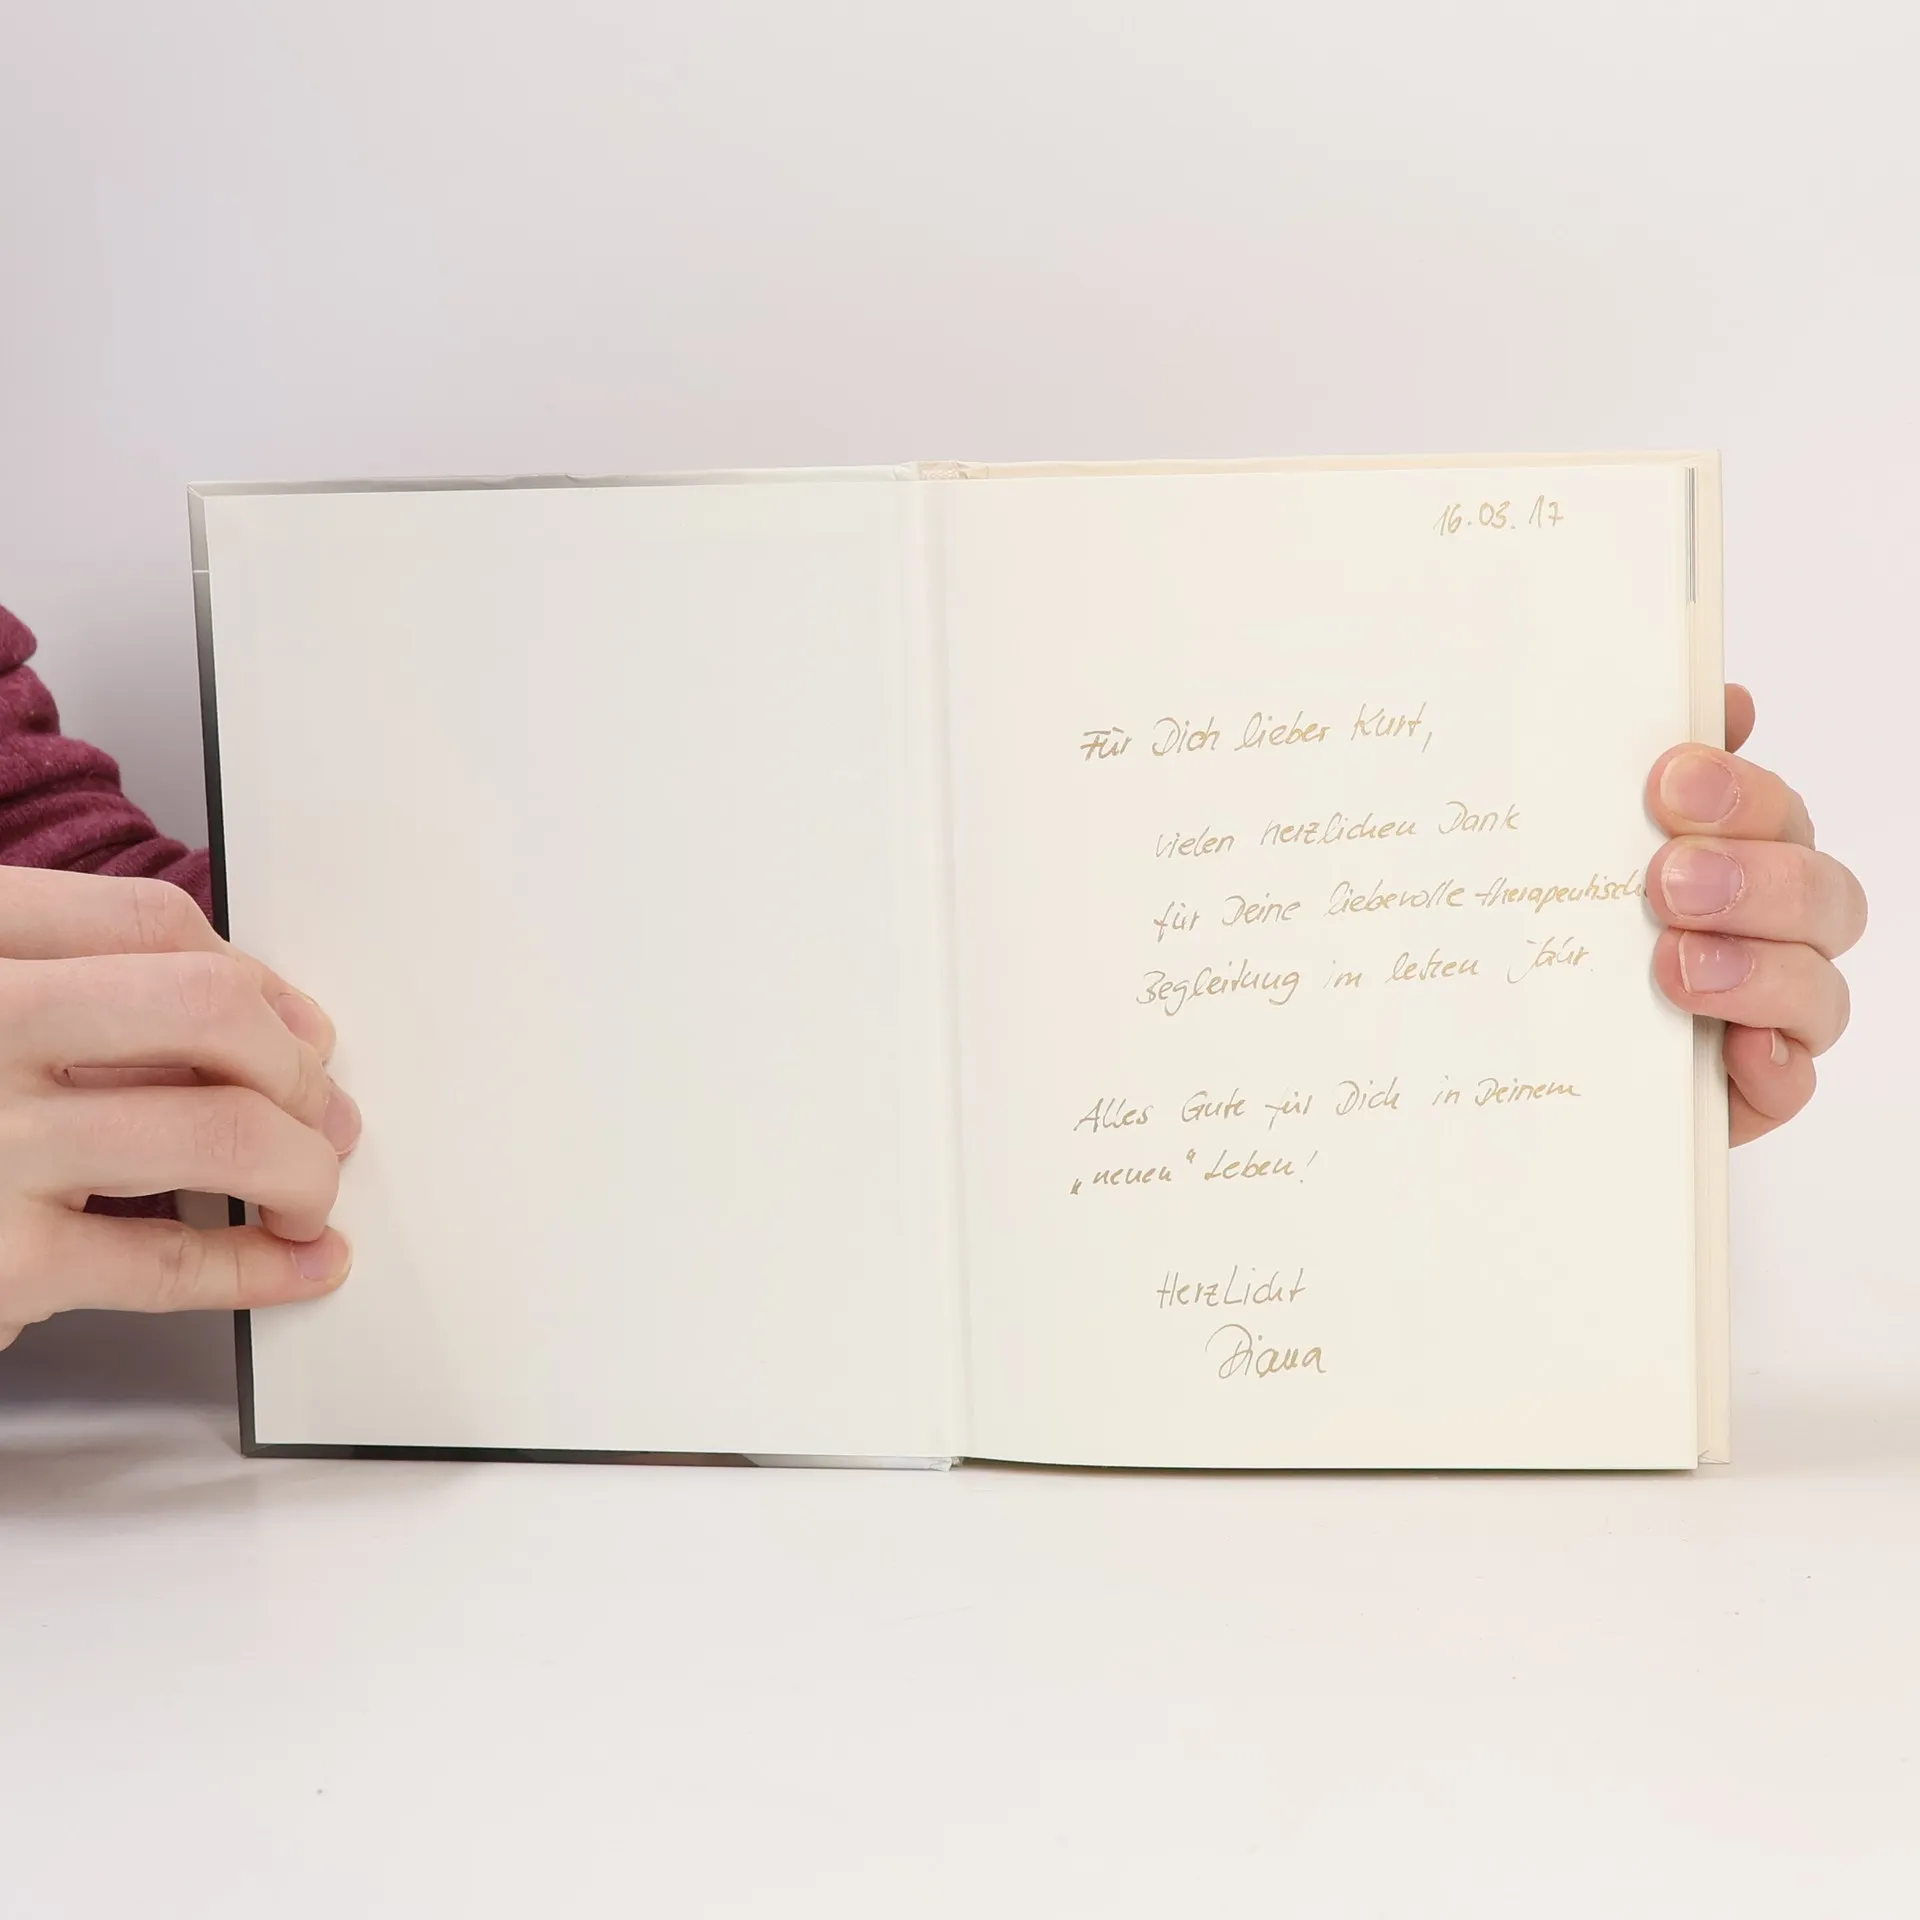 16.03.17
Für Dich lieber Kurt,
vielen herzlichen Dank
für Deine liebevolle therapeutische
Begleitung im letzen Jahr.
Alles Gute für Dich in Deinem
„neuen“ Leben!
HerzLicht
Diana